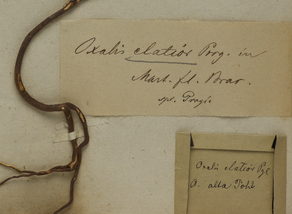 Oxalis elatior Prg. in
Mart. fl. Bras.
spr. Progic
Oxalis elatior Prg
O. alta Pohl